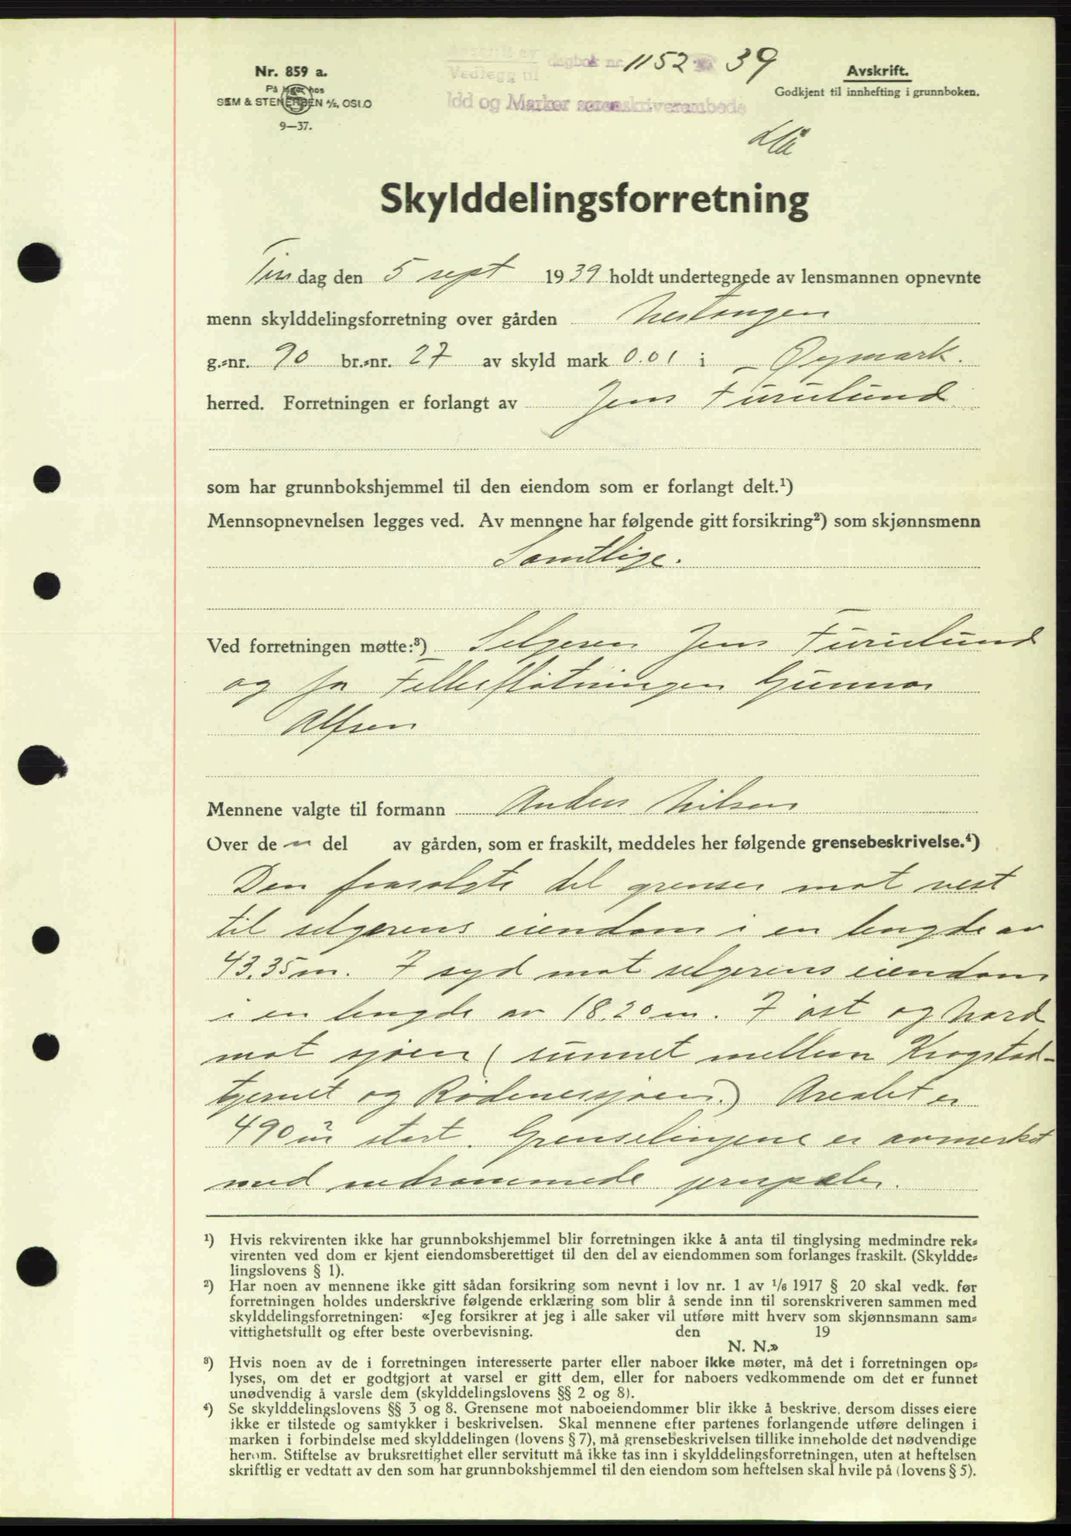 Nr. 859 a.
På lager hos
SEM & STENERSEN A/S, OSLO
9—37.
Vedlegg til dagbok nr. 1152 39
Idd og Marker sorenskriverembede
Avskrift.
Godkjent til innhefting i grunnboken.
Skylddelingsforretning
Tirsdag den 5 sept 1939 holdt undertegnede av lensmannen opnevnte
menn skylddelingsforretning over gården Nestangen
g.-nr. 90 br.-nr. 27 av skyld mark 0.01 i Øymark.
herred. Forretningen er forlangt av Jens Furulund
som har grunnbokshjemmel til den eiendom som er forlangt delt.¹)
Mennsopnevnelsen legges ved. Av mennene har følgende gitt forsikring²) som skjønnsmenn
Samtlige.
Ved forretningen møtte:³) Selgeren Jens Furulund
og for Fellesfløtningen Gunnar
Alfsen
Mennene valgte til formann Anders Nilsen
Over de n del av gården, som er fraskilt, meddeles her følgende grensebeskrivelse.⁴)
Den frasolgte del grenser mot vest
til selgerens eiendom i en lengde av
43.35 m. I syd mot selgerens eiendom
i en lengde av 18.20 m. I øst og Nord
mot sjøen (sunnet mellem Krogstad-
tjernet og Rødenessjøen.) Arealet er
490 m² stort. Grenselinjene er avmerket
med nedrammede jernpæler.
¹) Hvis rekvirenten ikke har grunnbokshjemmel blir forretningen ikke å anta til tinglysing medmindre rek-
virenten ved dom er kjent eiendomsberettiget til den del av eiendommen som forlanges fraskilt. (Skyldde-
lingslovens § 1).
²) Har noen av mennene ikke gitt sådan forsikring som nevnt i lov nr. 1 av 1/6 1917 § 20 skal vedk. før
forretningen holdes underskrive følgende erklæring som blir å sende inn til sorenskriveren sammen med
skylddelingsforretningen: «Jeg forsikrer at jeg i alle saker vil utføre mitt hverv som skjønnsmann sam-
vittighetsfullt og efter beste overbevisning. den 19
N. N.»
³) Hvis noen av de i forretningen interesserte parter eller naboer ikke møter, må det i forretningen op-
lyses, om det er godtgjort at varsel er gitt dem, eller for naboers vedkommende om det er funnet
unødvendig å varsle dem (skylddelingslovens §§ 2 og 8).
⁴) Se skylddelingslovens §§ 3 og 8. Grensene mot naboeiendommer blir ikke å beskrive, dersom disses eiere
ikke er tilstede og samtykker i beskrivelsen. Skal mennene efter partenes forlangende utføre delingen i
marken i forbindelse med skylddelingen (lovens § 7), må grensebeskrivelsen tillike inneholde det nødvendige
herom. Stiftelse av bruksrettighet eller servitutt må ikke tas inn i skylddelingsforretningen, uten at heftelsen
skriftlig er vedtatt av den som har grunnbokshjemmel til den eiendom som heftelsen skal hvile på (lovens § 5).